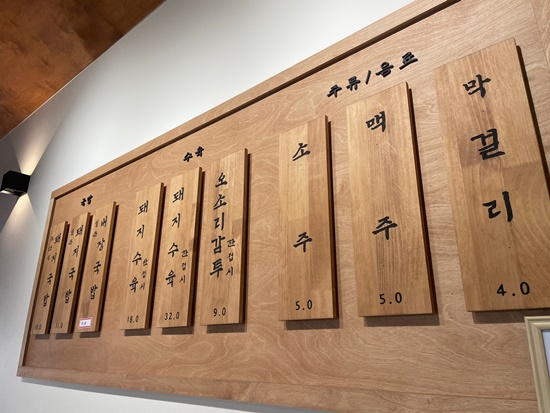 국밥
돼지국밥
돼지국밥
11.0
내장국밥
수육
돼지수육
한접시
18.0
돼지수육
한접시
32.0
오소리감투
한접시
9.0
주류/음료
소주
5.0
맥주
5.0
막걸리
4.0